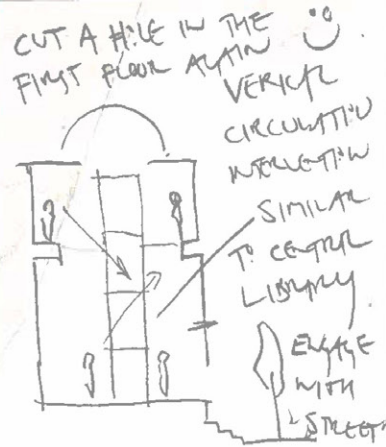 CUT A HOLE IN THE
FIRST FLOOR AGAIN
VERICAL
CIRCULATION
INTERVENTION
SIMILAR
TO CENTRAL
LIBRARY
ENGAGE
WITH
STREET